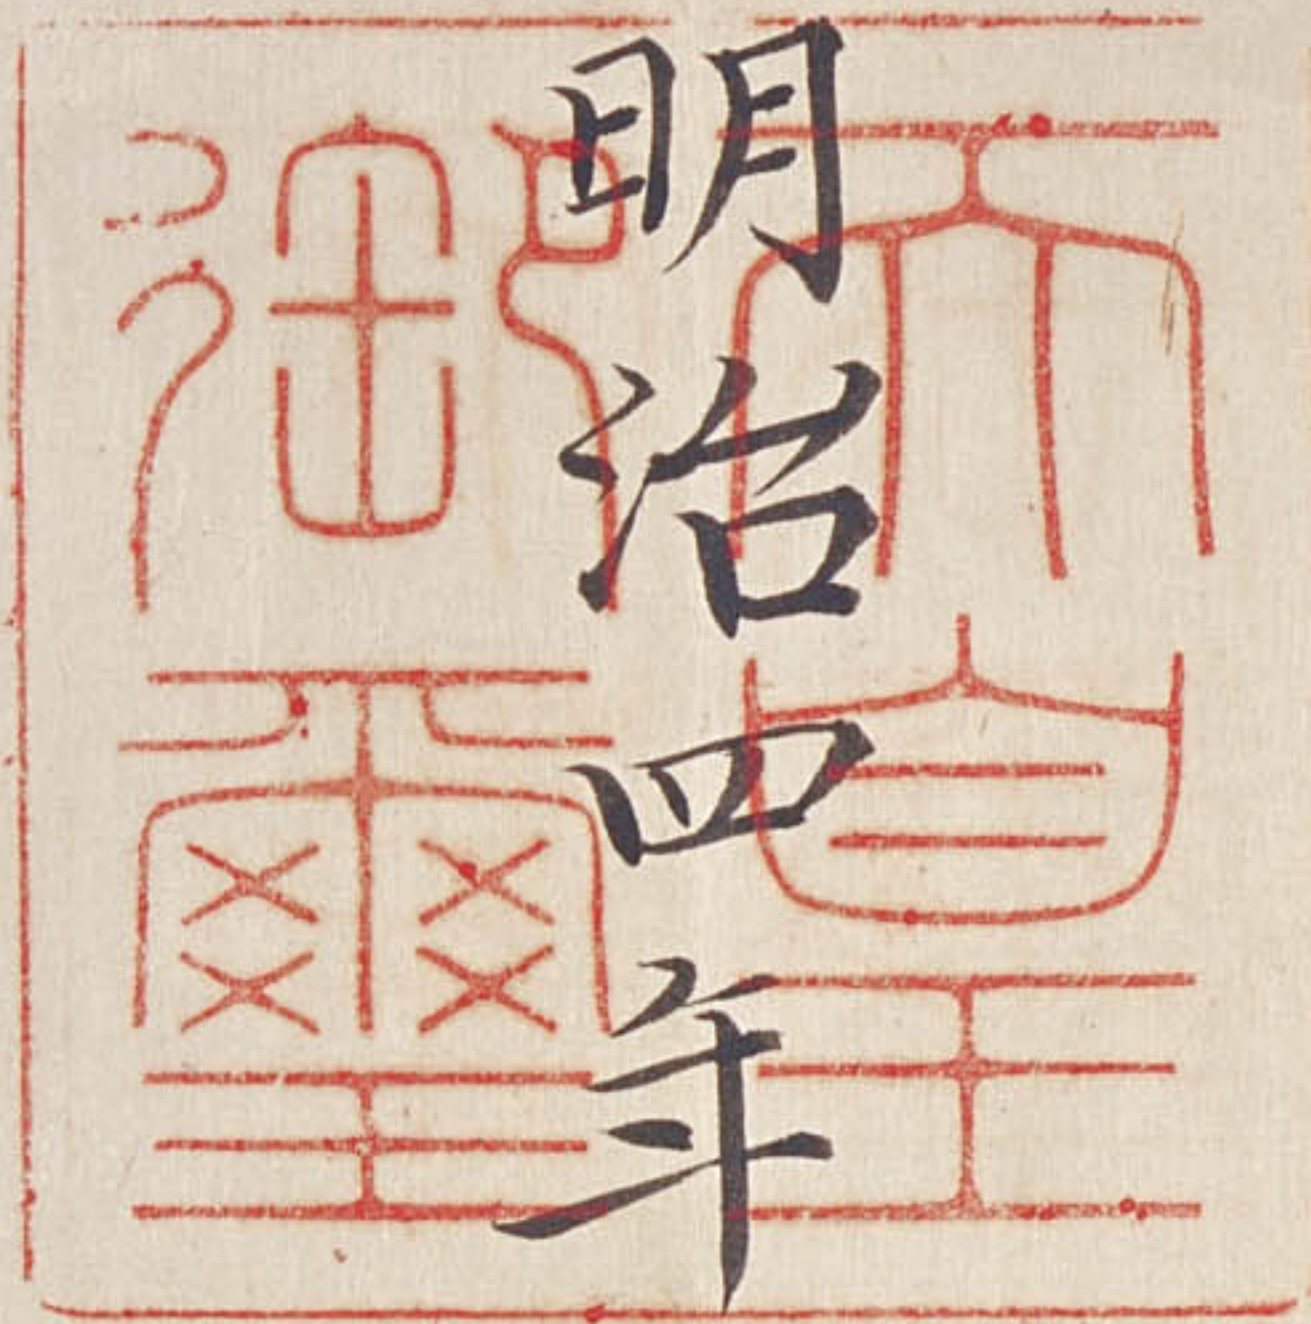 明治四年
天皇
御璽